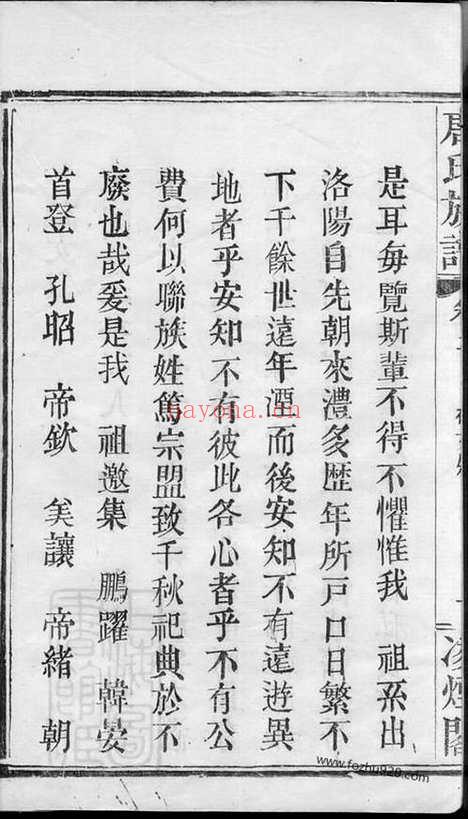 是耳每覽斯輩不得不懼惟我　祖系出
洛陽自先朝來澧多歷年所戸口日繁不
下千餘世遠年湮而後安知不有遠遊異
地者乎安知不有彼此各心者乎不有公
費何以聯族姓篤宗盟致千秋祀典於不
廢也哉爰是我　祖邀集　鵬躍　韓晏
首登　孔昭　帝欽　美讓　帝緒　朝
氏族譜
凌煙閣
nayona.cn
www.fozhu920.com